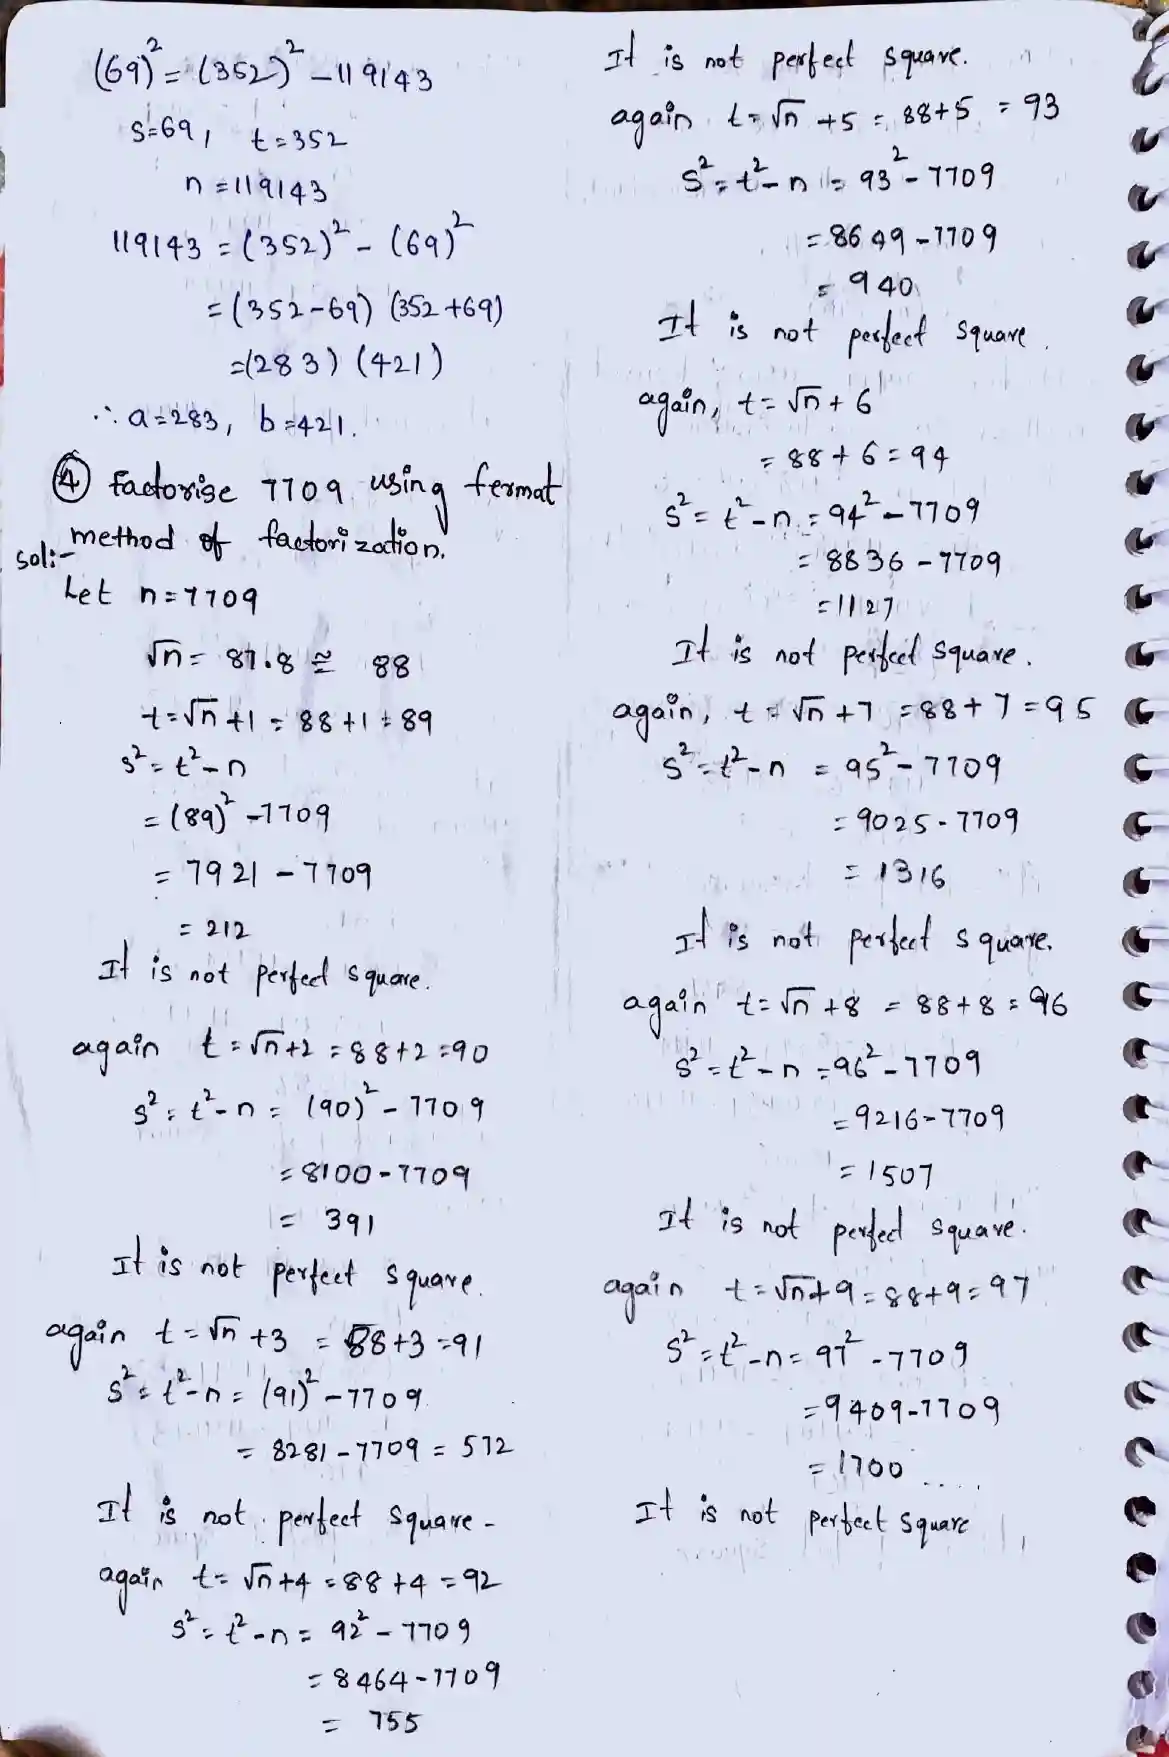 (69)² = (352)² - 119143
s=69, t=352
n=119143
119143 = (352)² - (69)²
= (352-69) (352+69)
=(283) (421)
∴ a=283, b=421.
④ Factorise 7709 using fermat
method of factorization.
sol:-
Let n=7709
√n = 87.8 ≅ 88
t=√n+1 = 88+1 = 89
s² = t²-n
= (89)² -7709
= 7921 - 7709
= 212
It is not perfect square.
again t=√n+2 = 88+2 =90
s² = t²-n = (90)² - 7709
= 8100-7709
= 391
It is not perfect square.
again t=√n +3 = 88+3 =91
s² = t²-n = (91)² -7709
= 8281-7709 = 572
It is not perfect square-
again t= √n+4 =88+4 =92
s² = t²-n = 92² - 7709
=8464-7709
= 755
It is not perfect square.
again t=√n +5 = 88+5 = 93
s² = t²-n = 93²-7709
=8649-7709
= 940
It is not perfect square.
again, t=√n+6
= 88+6=94
s² = t²-n = 94²-7709
= 8836-7709
=1127
It is not perfect square.
again, t = √n +7 =88+7=95
s² = t²-n = 95²-7709
=9025-7709
= 1316
It is not perfect square.
again t=√n +8 = 88+8=96
s² = t²-n =96²-7709
=9216-7709
=1507
It is not perfect square.
again t=√n+9=88+9=97
s² = t²-n = 97²-7709
=9409-7709
=1700
It is not perfect square